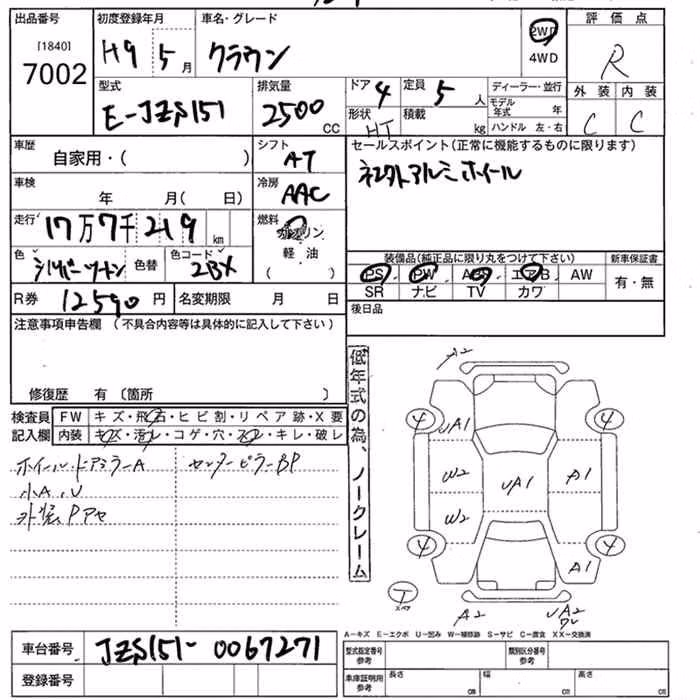 出品番号 初度登録年月 車名・グレード 2WD 評価点
[1840] H9 5月 クラウン 4WD R
7002
型式 排気量 ドア 4 定員 5人 ディーラー・並行 外装 内装
E-JZS151 2500CC 形状 HT 積載 kg モデル年式 年 C C
ハンドル 左・右
車歴 シフト セールスポイント(正常に機能するものに限ります)
自家用・( ) AT
車検 冷房
年 月( 日) AAC
走行 17万7千219km 燃料 ガソリン
軽油
( )
色 シルバーツートン 色替 色コード 2BX
装備品(純正品に限り丸をつけて下さい) 新車保証書
PS PW ABS エアB AW 有・無
SR ナビ TV カワ
R券 12590円 名変期限 月 日 後日品
注意事項申告欄 (不具合内容等は具体的に記入して下さい)
修復歴 有 〔箇所 〕
検査員 FW キズ・飛石・ヒビ割・リペア跡・X要
記入欄 内装 キズ・汚レ・コゲ・穴・スレ・キレ・破レ
ホイール・ドアミラーA センターピラーBP
小A.U
低年式の為、ノークレーム
A2
4 4
UA1
W2 UA1 A1
W2
4 4
A1
T
スペア
A2
A-キズ E-エクボ U-凹み W-補修跡 S-サビ C-腐食 XX-交換済
車台番号 JZS151-0067271
登録番号
型式指定番号 参考 類別区分番号 参考
車庫証明用 参考 長さ cm 幅 cm 高さ cm